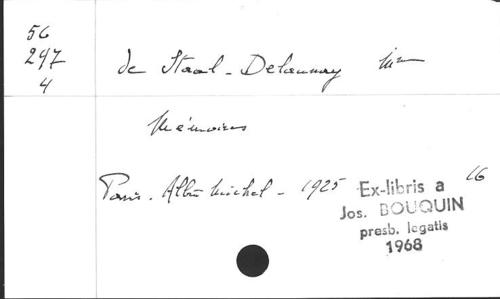 56
247
4
de Staal-Delaunay Mme
Mémoires
Paris. Albin Michel - 1925
16
Ex-libris a
Jos. BOUQUIN
presb. legatis
1968